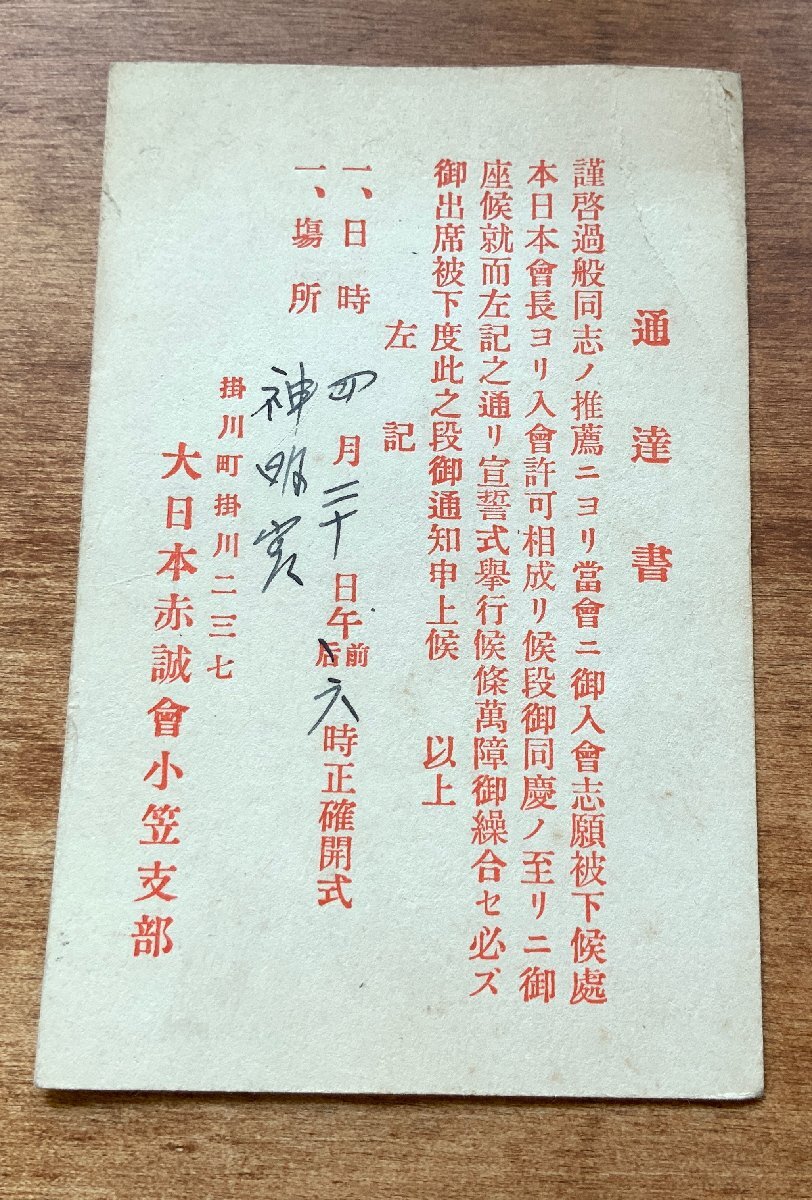 通達書
謹啓過般同志ノ推薦ニヨリ當會ニ御入會志願被下候處
本日本會長ヨリ入會許可相成リ候段御同慶ノ至リニ御
座候就而左記之通リ宣誓式擧行候條萬障御繰合セ必ズ
御出席被下度此之段御通知申上候　以上
左記
一、日時　四月二十日午前后六時正確開式
一、場所　神明宮
掛川町掛川二三七
大日本赤誠會小笠支部